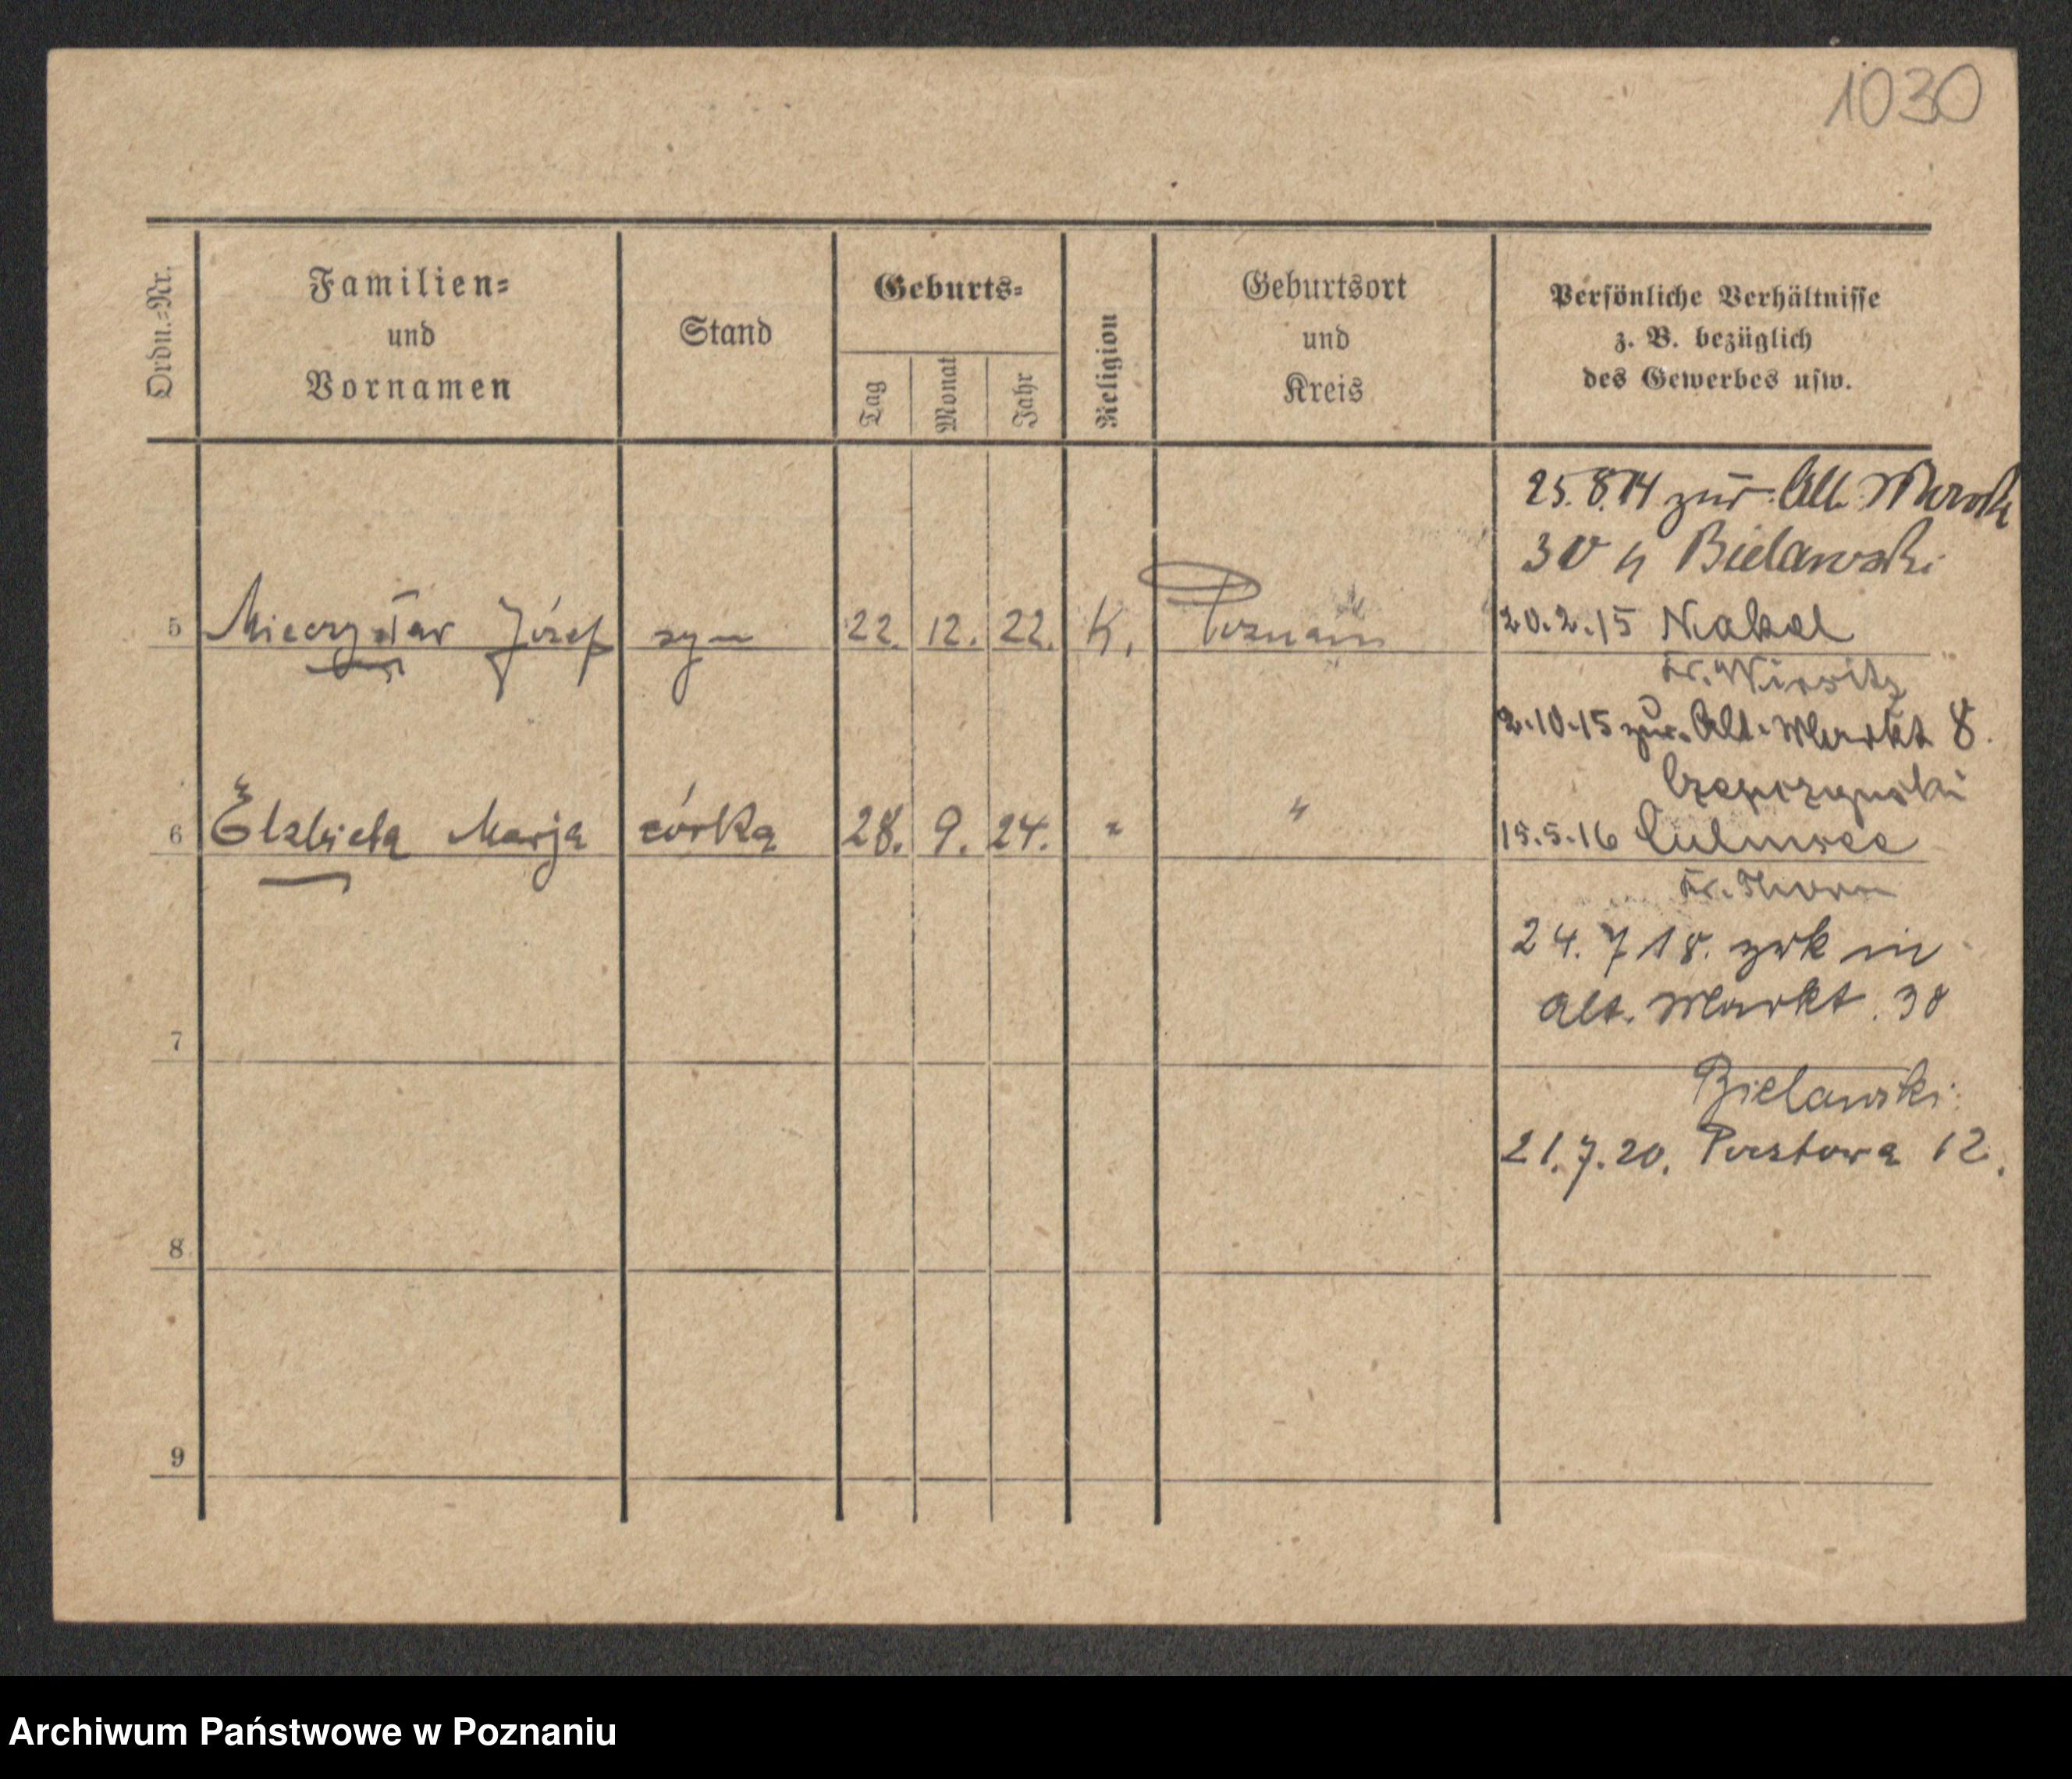 1030
Ordn.-Nr.
Familien-
und
Vornamen
Stand
Geburts-
Tag
Monat
Jahr
Religion
Geburtsort
und
Kreis
Persönliche Verhältnisse
z. B. bezüglich
des Gewerbes usw.
25.8.14 zur. Alt. Markt
30 Bielawski
5 Mieczysław Józef syn 22. 12. 22. K. Poznań
20.2.15 Nakel
Kr. Wirsitz
2.10.15 zur. Alt. Markt 8.
Czepczynski
6 Elżbieta Marja córka 28. 9. 24. " "
15.5.16 Culmsee
Kr. Thorn
24. 7 18. zrk in
Alt. Markt. 38
7
Bielawski
21.7.20. Pocztowa 12.
8
9
Archiwum Państwowe w Poznaniu